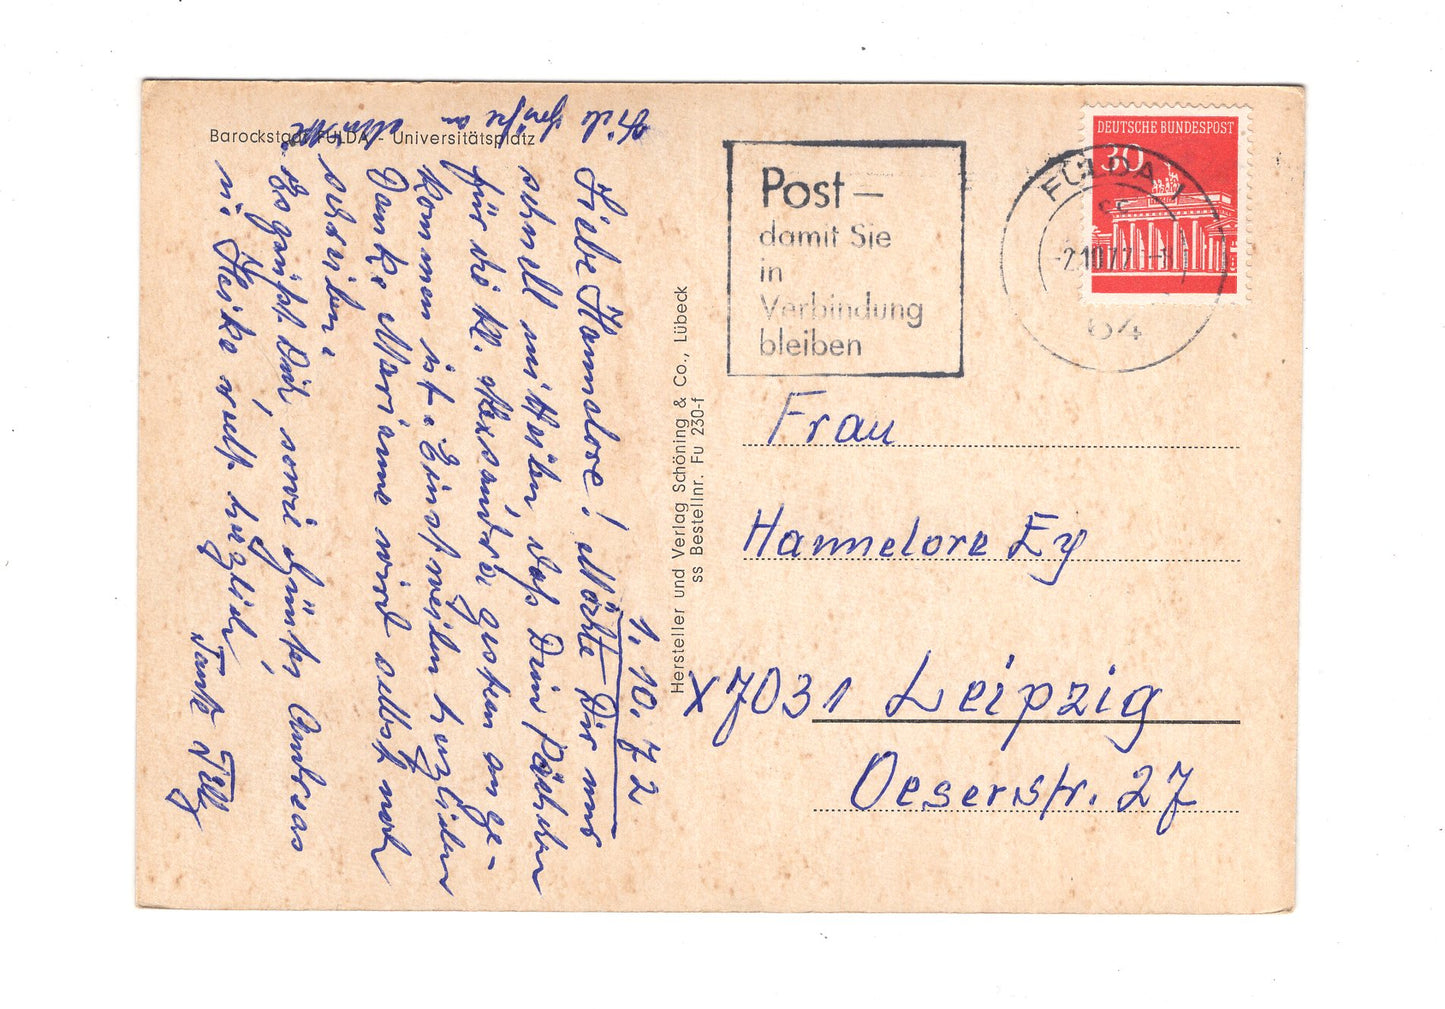 Barockstadt FULDA - Universitätsplatz
Viele Grüße an
1.10.72
Liebe Hannelore! Möchte Dir nur
schnell mitteilen daß Dein Päckchen
für die kl. Alexandra gestern ange-
kommen ist. Einstweilen herzlichen
Dank. Marianne wird selbst noch
schreiben.
Es grüßt Dich, sowie Günter Andreas
u. Heike recht herzlich
Tante
Hersteller und Verlag Schöning & Co., Lübeck
ss Bestellnr. Fu 230-f
Post –
damit Sie
in
Verbindung
bleiben
DEUTSCHE BUNDESPOST
30
FULDA 1
-2.10.72 -8
64
Frau
Hannelore Ey
X7031 Leipzig
Oeserstr. 27